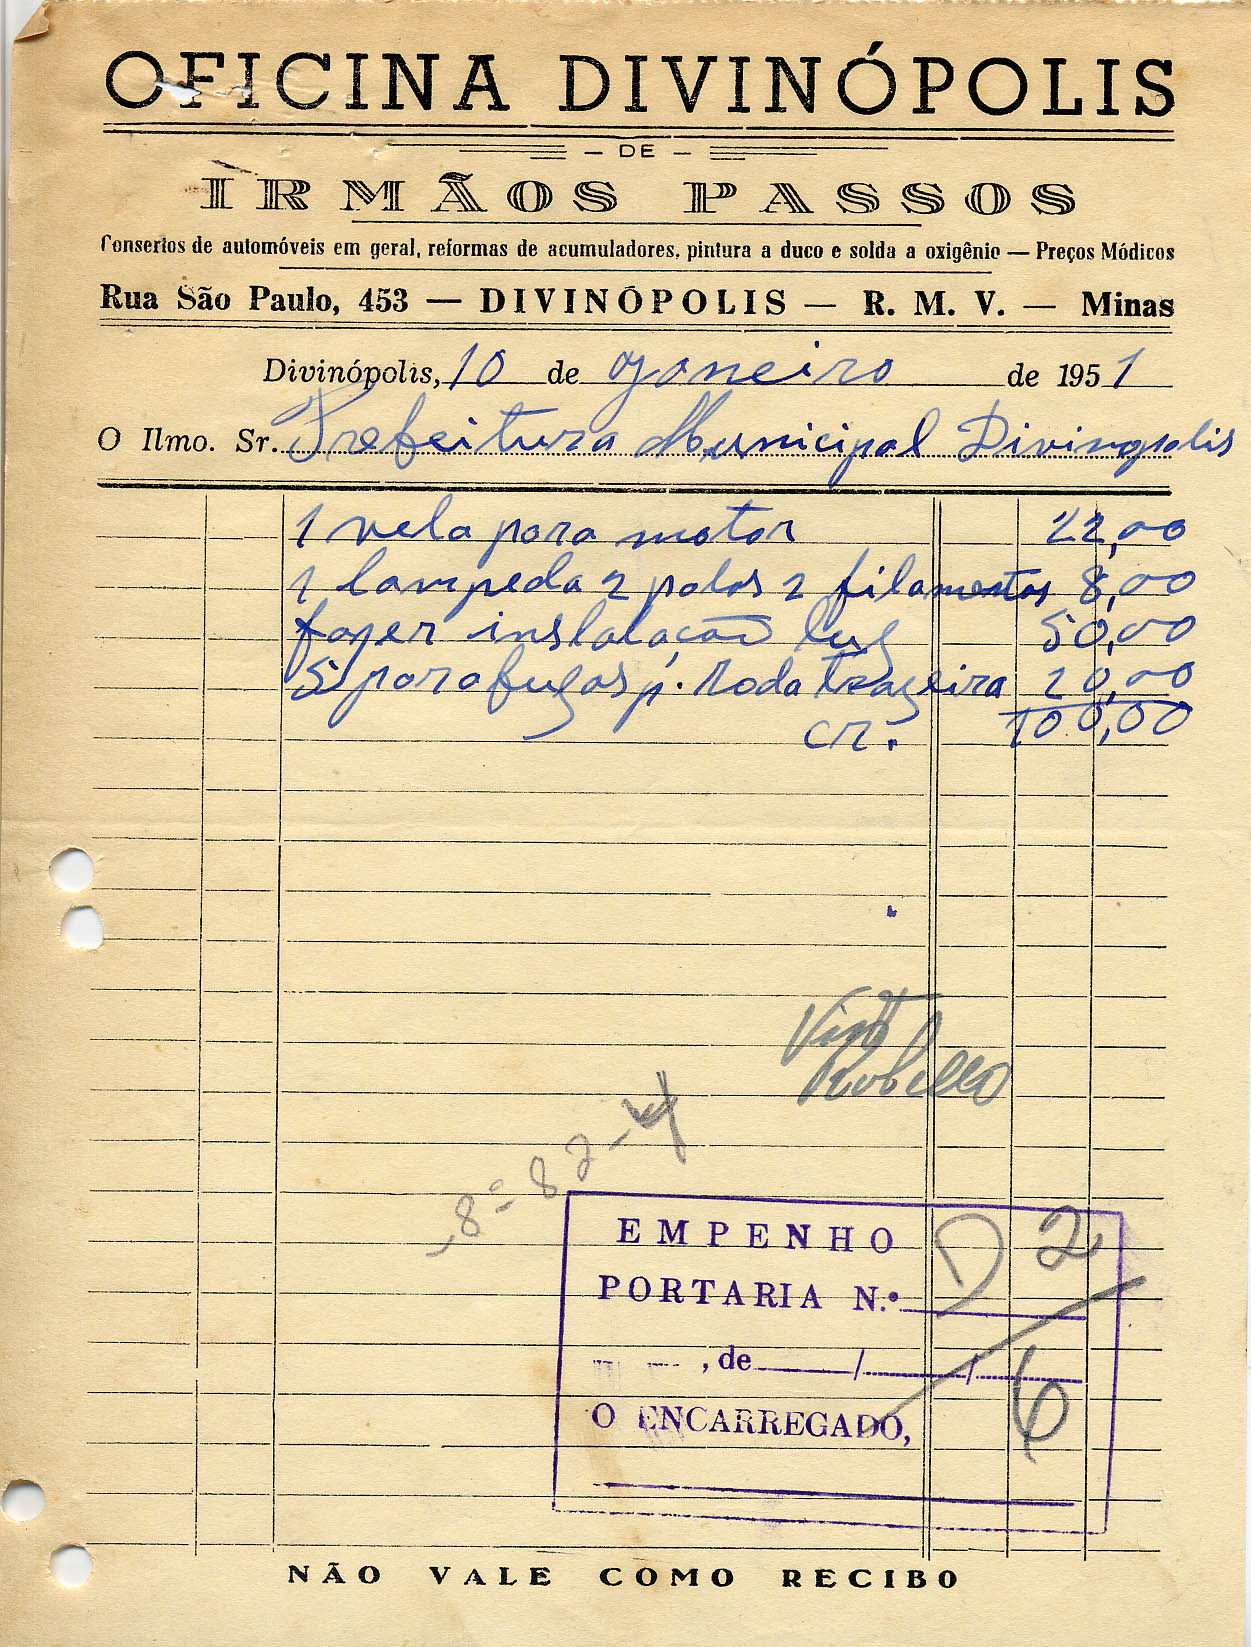 OFICINA DIVINÓPOLIS
— DE —
IRMÃOS PASSOS
Consertos de automóveis em geral, reformas de acumuladores, pintura a duco e solda a oxigênio — Preços Módicos
Rua São Paulo, 453 — DIVINÓPOLIS — R. M. V. — Minas
Divinópolis, 10 de Janeiro de 1951
O Ilmo. Sr. Prefeitura Municipal Divinopolis
1 vela para motor 22,00
1 lampeda 2 polos 2 filamentos 8,00
fazer instalação luz 50,00
5 parafuzos p. Roda trazeira 20,00
cr. 100,00
Visto
8 = 82 -
EMPENHO D 2
PORTARIA N.º
, de / / 6
O ENCARREGADO,
NÃO VALE COMO RECIBO